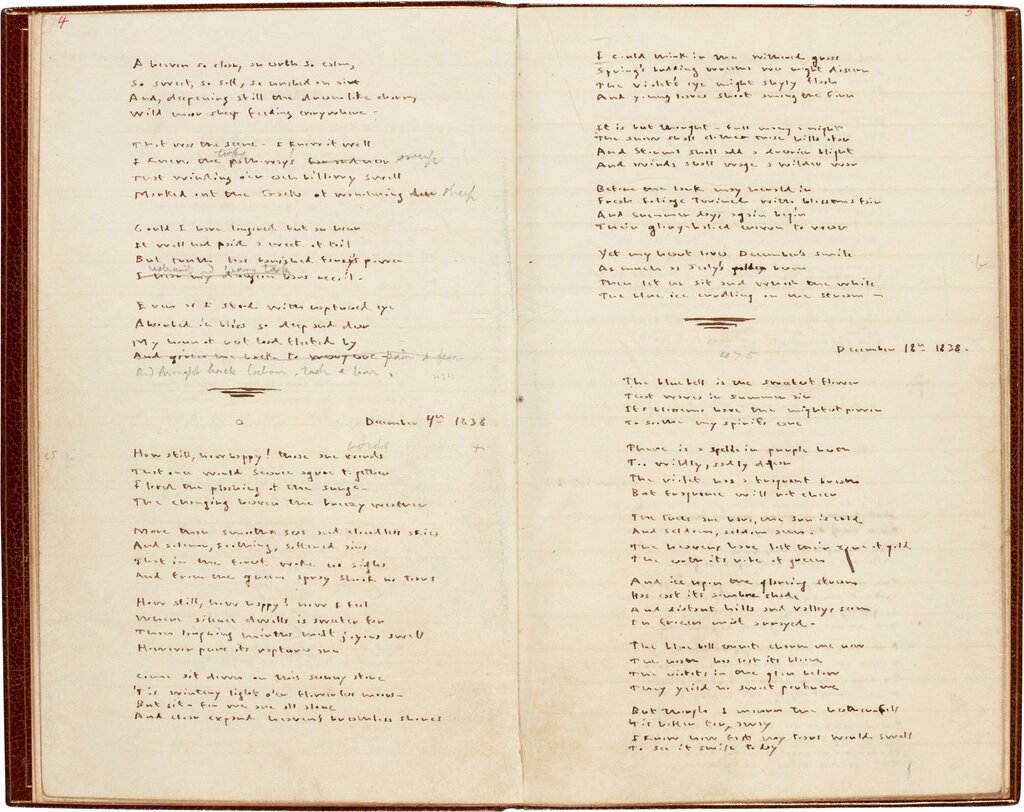 4
A heaven so clear, an earth so calm,
So sweet, so soft, so hushed an air
And, deepening still the dreamlike charm,
Wild moor sheep feeding everywhere -
That was the scene - I knew it well
turfy
I knew the path-ways far and near sweep
That winding o'er each billowy swell
Marked out the tracks of wandering deer sheep
Could I have lingered but an hour
It well had paid a week of toil
But truth has banished fancy's power
restraint and heavy task
I hear my dungeon bars recoil -
Even as I stood with raptured eye
Absorbed in bliss so deep and dear
My hour of rest had fleeted by
And given me back to weary care
and brought back labour, task & tear.
December 4th 1838
words
How still, how happy! those are words
That once would scarce agree together
I loved the plashing of the surge -
The changing heaven the breezy weather
More than smooth seas and cloudless skies
And solemn, soothing, softened airs
That in the forest woke no sighs
And from the green spray shook no tears
How still, how happy! now I feel
Where silence dwells is sweeter far
Than laughing mirth's most joyous swell
However pure its raptures are
Come sit down on this sunny stone
'Tis wintery light o'er flowerless moors -
But sit - for we are all alone
And clear expand heaven's breathless shores
5
I could think in the withered grass
Spring's budding wreaths we might discern
The violet's eye might shyly flash
And young leaves shoot among the fern
It is but thought - full many a night
The snow shall clothe those hills afar
And Storms shall add a drearier blight
And winds shall wage a wilder war
Before the lark may herald in
Fresh foliage twined with blossoms fair
And summer days again begin
Their glory-haloed crown to wear
Yet my heart loves December's smile
As much as July's golden beam
Then let us sit and watch the while
The blue ice curdling on the stream -
December 18th 1838 -
The bluebell is the sweetest flower
That waves in summer air
Its blossoms have the mightiest power
To soothe my spirit's care
There is a spell in purple heath
Too wildly, sadly dear
The violet has a fragrant breath
But fragrance will not cheer
The trees are bare, the sun is cold
And seldom, seldom seen -
The heavens have lost their zone of gold
The earth its robe of green
And ice upon the glancing stream
Has cast its sombre shade
And distant hills and valleys seem
In frozen mist arrayed -
The blue bell cannot charm me now
The heath has lost its bloom
The violets in the glen below
They yield no sweet perfume
But though I mourn the heather-bell
'Tis better far, away
I know how fast my tears would swell
To see it smile today